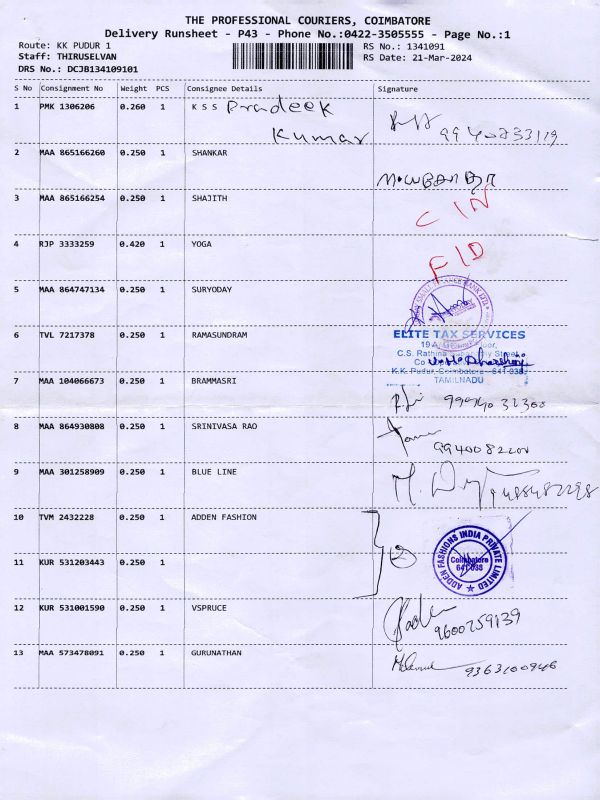 THE PROFESSIONAL COURIERS, COIMBATORE
Delivery Runsheet - P43 - Phone No.:0422-3505555 - Page No.:1
Route: KK PUDUR 1 RS No.: 1341091
Staff: THIRUSELVAN RS Date: 21-Mar-2024
DRS No.: DCJB134109101
S No Consignment No Weight PCS Consignee Details Signature
1 PMK 1306206 0.260 1 K S S Pradeek
Kumar
2 MAA 865166260 0.250 1 SHANKAR
3 MAA 865166254 0.250 1 SHAJITH
C IN
4 RJP 3333259 0.420 1 YOGA
F I D
5 MAA 864747134 0.250 1 SURYODAY
6 TVL 7217378 0.250 1 RAMASUNDRAM ELITE TAX SERVICES
C.S. Rathina
K.K. Pudur, Coimbatore - 641 038.
7 MAA 104066673 0.250 1 BRAMMASRI TAMILNADU
8 MAA 864930808 0.250 1 SRINIVASA RAO
9 MAA 301258909 0.250 1 BLUE LINE
10 TVM 2432228 0.250 1 ADDEN FASHION
ADDEN FASHIONS INDIA PRIVATE LIMITED
Coimbatore
641 038
11 KUR 531203443 0.250 1
12 KUR 531001590 0.250 1 VSPRUCE
9600259139
13 MAA 573478091 0.250 1 GURUNATHAN
9363100946